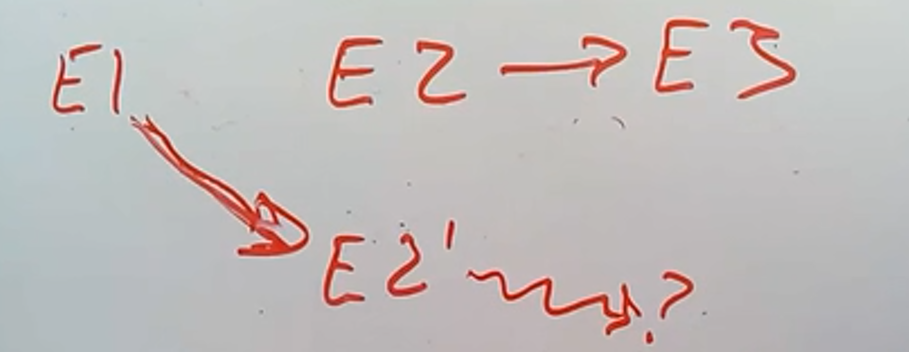 E1 E2 → E3
E2' ?